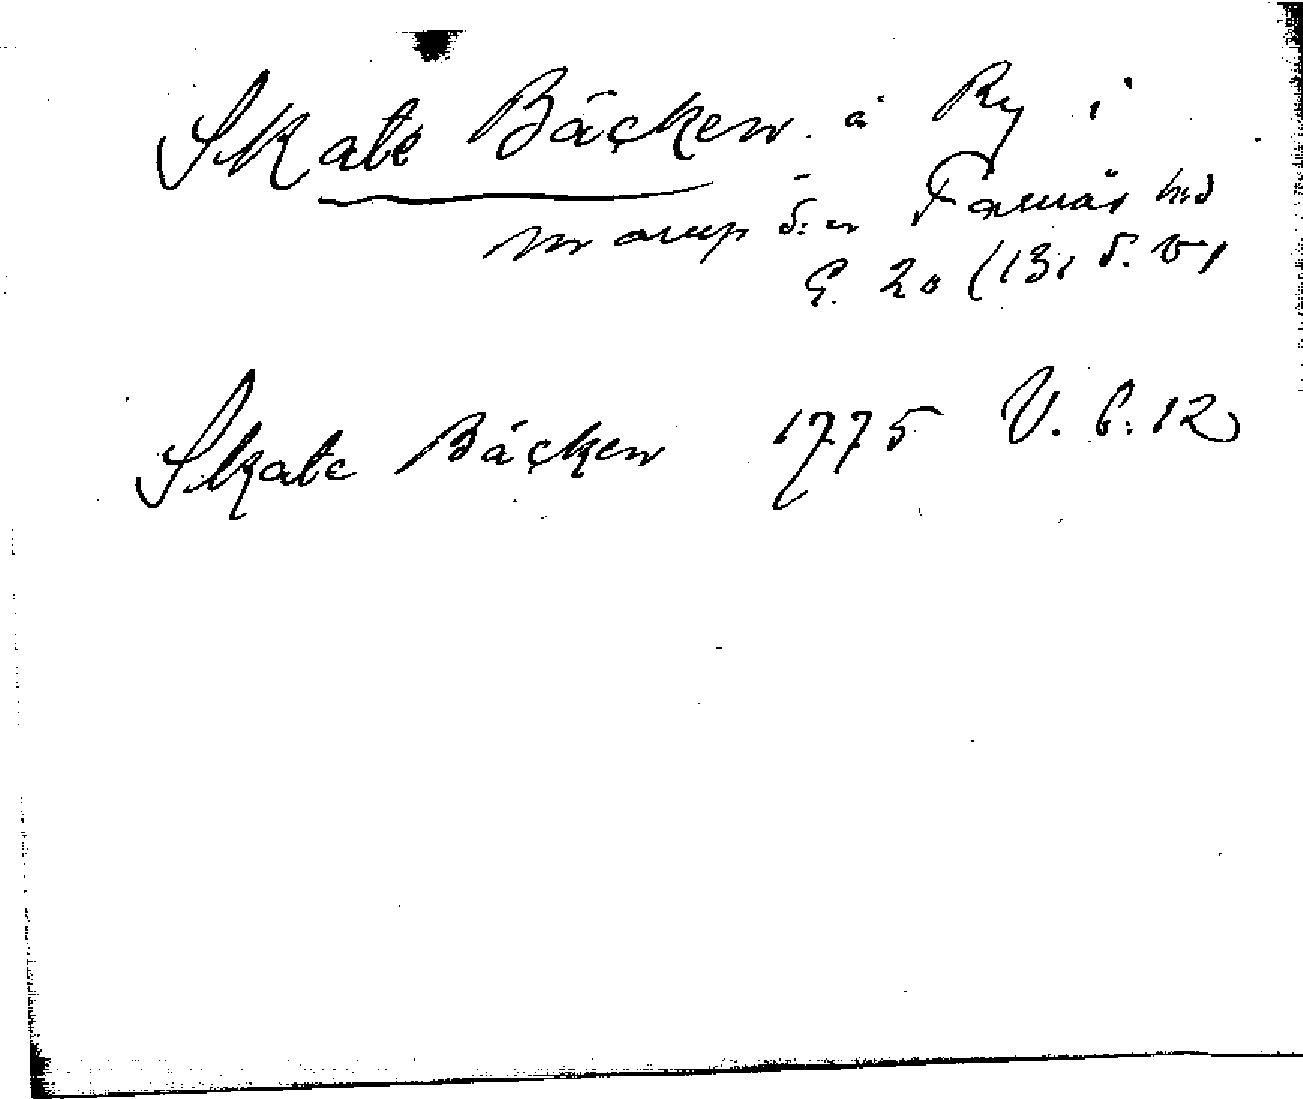 Skate Bäcken å Ry i
Marup s:n Faurås hd
G. 20 (131 S. V)
Skate Bäcken 1775 V. 6:12